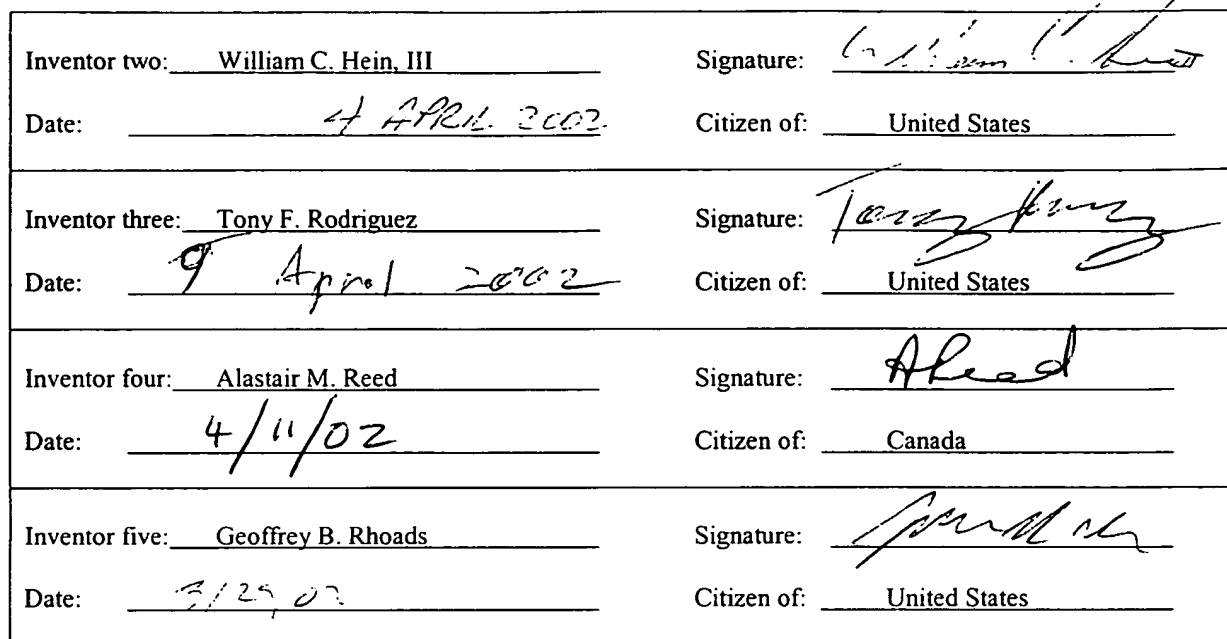 Inventor two: William C. Hein, III Signature: William C. Hein III
Date: 4 APRIL 2002 Citizen of: United States
Inventor three: Tony F. Rodriguez Signature: Tony
Date: 9 April 2002 Citizen of: United States
Inventor four: Alastair M. Reed Signature: AReed
Date: 4/11/02 Citizen of: Canada
Inventor five: Geoffrey B. Rhoads Signature:
Date: 3/29/02 Citizen of: United States